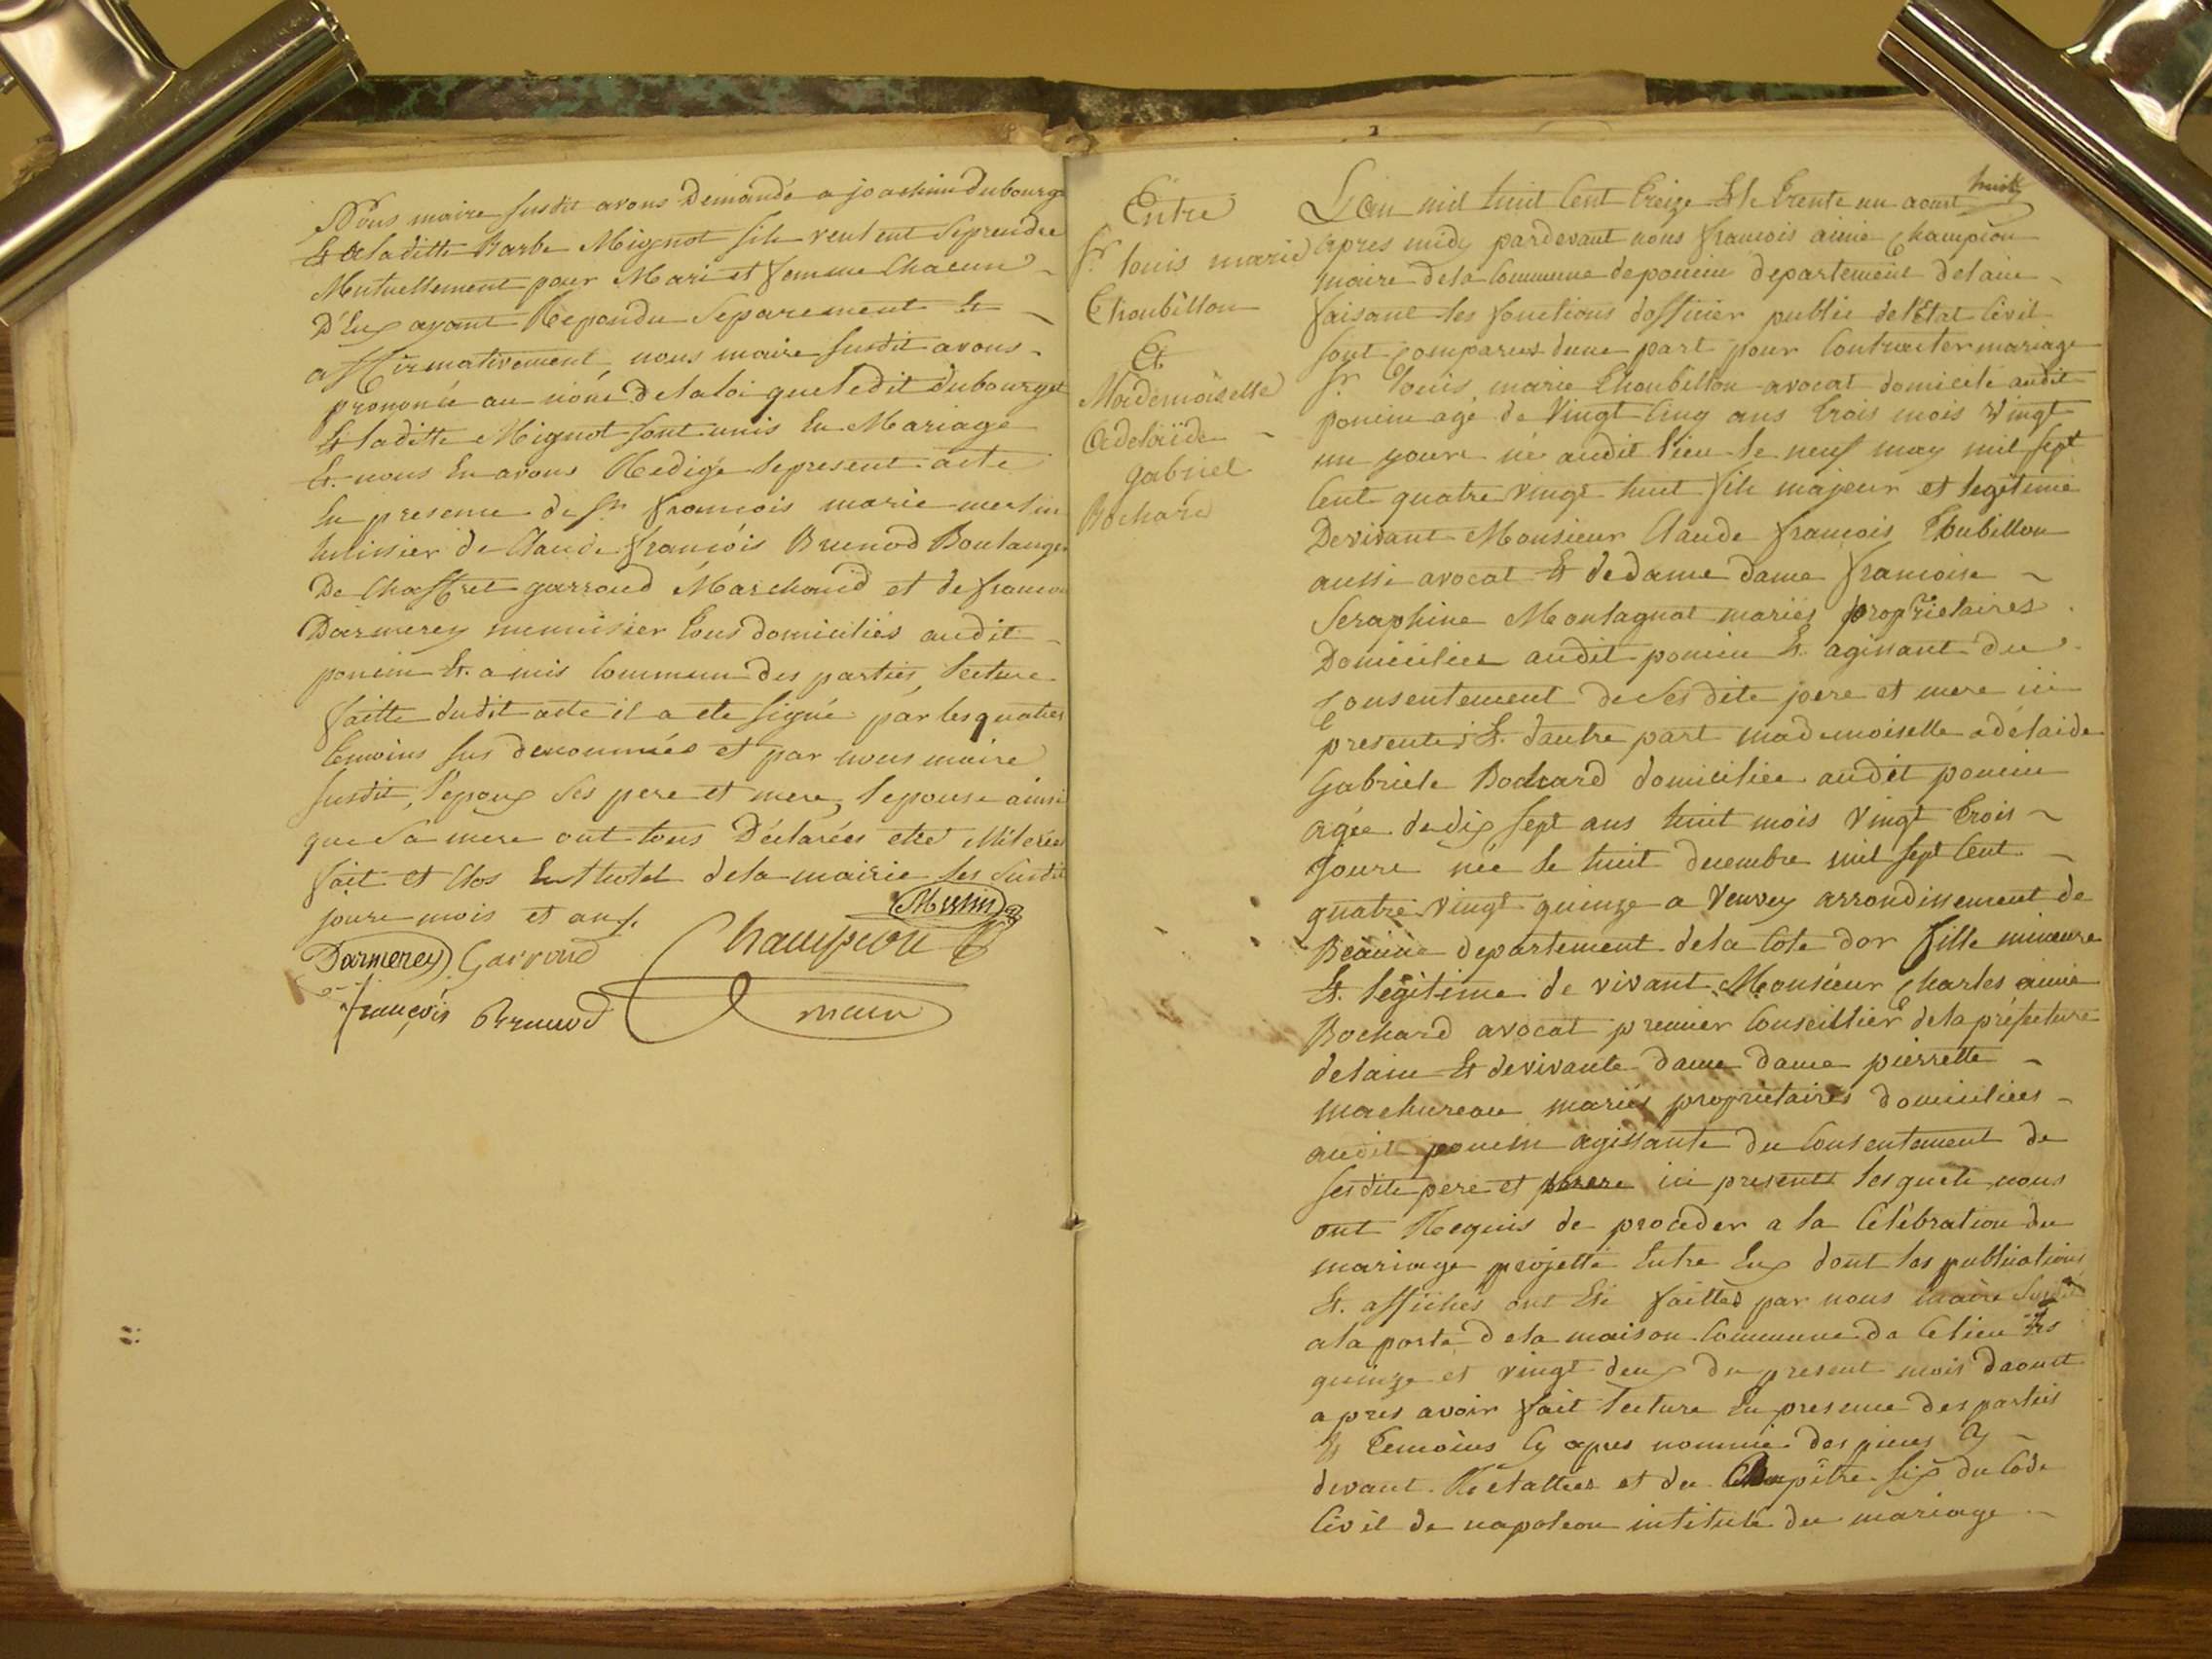 Nous maire susdit avons Demandé a joachim dubourget
Et a laditte Barbe Mignot sils veulent se prendre
Mutuellement pour Mari et femme Chacun
D'Eux ayant Repondu Separement Et
affirmativement, nous maire susdit avons
prononcé au nom de la loi que ledit dubourget
Et laditte Mignot sont unis En Mariage
Et. nous En avons Redigé le present acte
En presence de Sr francois marie merlin
huissier de Claude françois Brunod Boulanger
De Chaffret garroud Marchand et de francois
Darmerey menuisier tous domiciliés audit
poncin Et. amis Commun des parties, lecture
faitte dudit acte il a ete signé par les quatres
temoins sus denommés et par nous maire
susdit, l'epoux ses pere et mere, lepouse ainsi
que sa mere ont tous Déclarées etre illiterés
fait et Clos En lhotel de la mairie les susdit
jours mois et an.
Darmerey Garroud Champion
françois Brunod maire
Entre
Sr. louis marie
Thoubillon
Et
Mademoiselle
Adelaïde
gabriel
Bochard
L'an mil huit Cent treize Et le trente un aoust huit
apres midy pardevant nous francois aimé Champion
maire de la Commune de poncin departement de lain
faisant les fonctions dofficier public de l'Etat Civil
sont Comparus dune part pour Contracter mariage
Sr. louis marie Thoubillon avocat domicilé audit
poncin agé de Vingt Cinq ans trois mois Vingt
un jours né audit lieu le neuf may mil sept
Cent quatre Vingt huit fils majeur et legitime
De vivant Monsieur Claude francois Thubillon
aussi avocat Et de dame dame francoise
Seraphine Montagnat mariés propriétaires
Domiciliés audit poncin Et. agissant du
Consentement de Ses dits pere et mere ici
presents, Et. dautre part mademoiselle adélaide
Gabriele Bochard domiciliée audit poncin
agée de dix sept ans huit mois Vingt trois
Jours née le huit decembre mil sept Cent
quatre Vingt quinze a Veuvey arrondissement de
Beaune departement de la Cote dor fille mineure
Et. légitime de vivant Monsieur Charles aimé
Bochard avocat premier Conseillier de la préfecture
de lain Et de vivante dame dame pierrette
machureau mariés propriètaires domiciliées
audit poncin agissante du Consentement de
ses dits pere et mere ici presents lesquels nous
ont Requis de proceder a la Célébration du
mariage projetté Entre Eux dont les publications
Et. affiches ont Eté faittes par nous maire susdit
a la porte de la maison Commune de Ce lieu les
quinze et vingt deux du present mois daoust
apres avoir fait lecture En presence des parties
Et temoins Cy apres nommés des pieces Cy
devant Rélattées et du Chapitre six du Code
Civil de napoleon intitulé du mariage